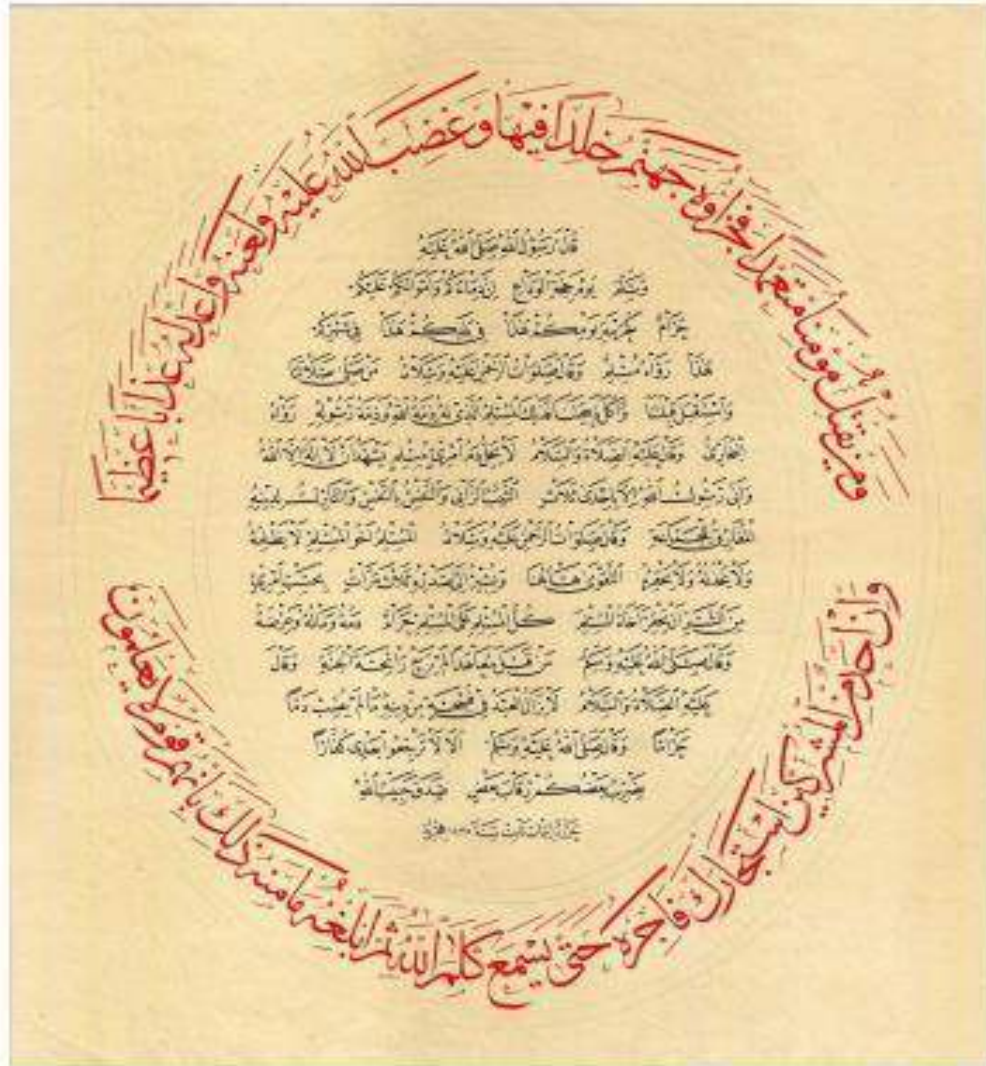 ومن يقتل مؤمنا متعمدا فجزاؤه جهنم خلدا فيها وغضب الله عليه ولعنه وأعد له عذابا عظيما
قال رسول الله صلى الله عليه
وسلم يوم حجة الوداع إن دماءكم وأموالكم عليكم
حرام كحرمة يومكم هذا في بلدكم هذا في شهركم
هذا رواه مسلم وقال صلوات الرحمن عليه وسلامه من صلى صلاتنا
واستقبل قبلتنا وأكل ذبيحتنا فذلك المسلم الذي له ذمة الله وذمة رسوله رواه
البخاري وقال عليه الصلاة والسلام لا يحل دم امرئ مسلم يشهد أن لا إله إلا الله
وأني رسول الله إلا بإحدى ثلاث الثيب الزاني والنفس بالنفس والتارك لدينه
المفارق للجماعة وقال صلوات الرحمن عليه وسلامه المسلم أخو المسلم لا يظلمه
ولا يخذله ولا يحقره التقوى هاهنا ويشير إلى صدره ثلاث مرات بحسب امرئ
من الشر أن يحقر أخاه المسلم كل المسلم على المسلم حرام دمه وماله وعرضه
وقال صلى الله عليه وسلم من قتل معاهدا لم يرح رائحة الجنة وقال
عليه الصلاة والسلام لا يزال العبد في فسحة من دينه ما لم يصب دما
حراما وقال صلى الله عليه وسلم ألا لا ترجعوا بعدي كفارا
يضرب بعضكم رقاب بعض صدق حبيب الله
وإن أحد من المشركين استجارك فأجره حتى يسمع كلم الله ثم أبلغه مأمنه ذلك بأنهم قوم لا يعلمون